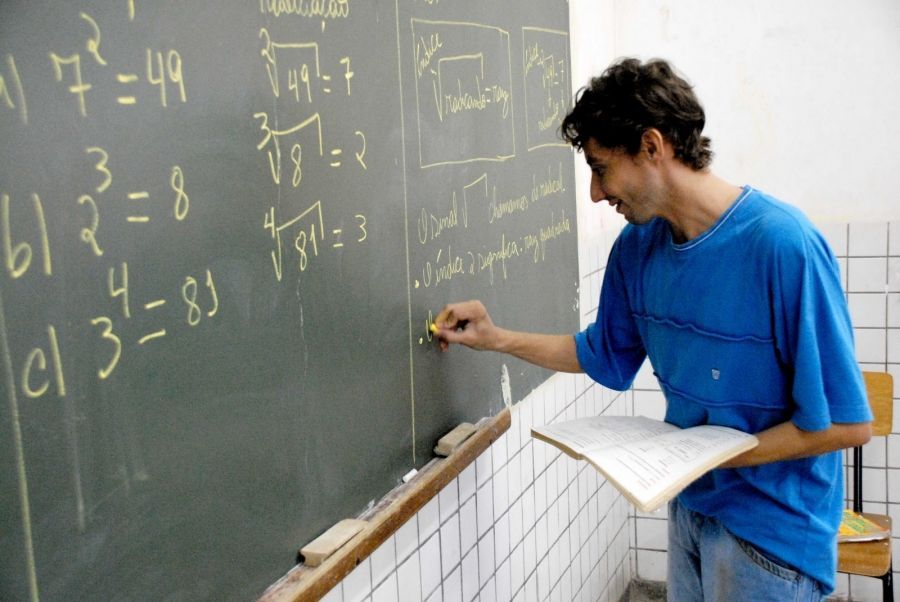 a) 7² = 49
b) 2³ = 8
c) 3⁴ = 81
Radiciação
²√49 = 7
³√8 = 2
⁴√81 = 3
índice
√radicando = raiz
√49 = 7
O sinal √ chamamos de radical.
• O índice 2 significa: raiz quadrada
• O